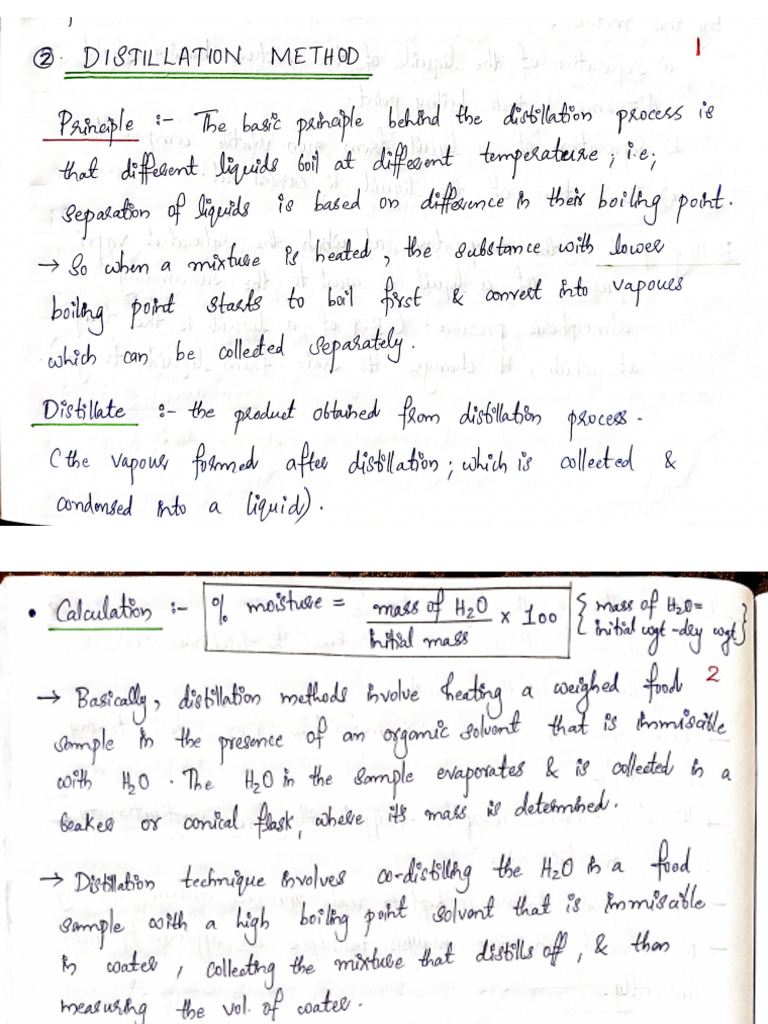 ②. DISTILLATION METHOD
1
Principle :- The basic principle behind the distillation process is
that different liquids boil at different temperature; i.e;
separation of liquids is based on difference in their boiling point.
→ So when a mixture is heated, the substance with lower
boiling point starts to boil first & convert into vapours
which can be collected separately.
Distillate :- the product obtained from distillation process.
(the vapour formed after distillation; which is collected &
condensed into a liquid).
• Calculation :- % moisture = mass of H₂O / initial mass × 100 {mass of H₂O = initial wgt - dry wgt}
2
→ Basically, distillation methods involve heating a weighed food
sample in the presence of an organic solvent that is immiscible
with H₂O. The H₂O in the sample evaporates & is collected in a
beaker or conical flask, where its mass is determined.
→ Distillation technique involves co-distilling the H₂O in a food
sample with a high boiling point solvent that is immiscible
in water, collecting the mixture that distills off, & then
measuring the vol. of water.